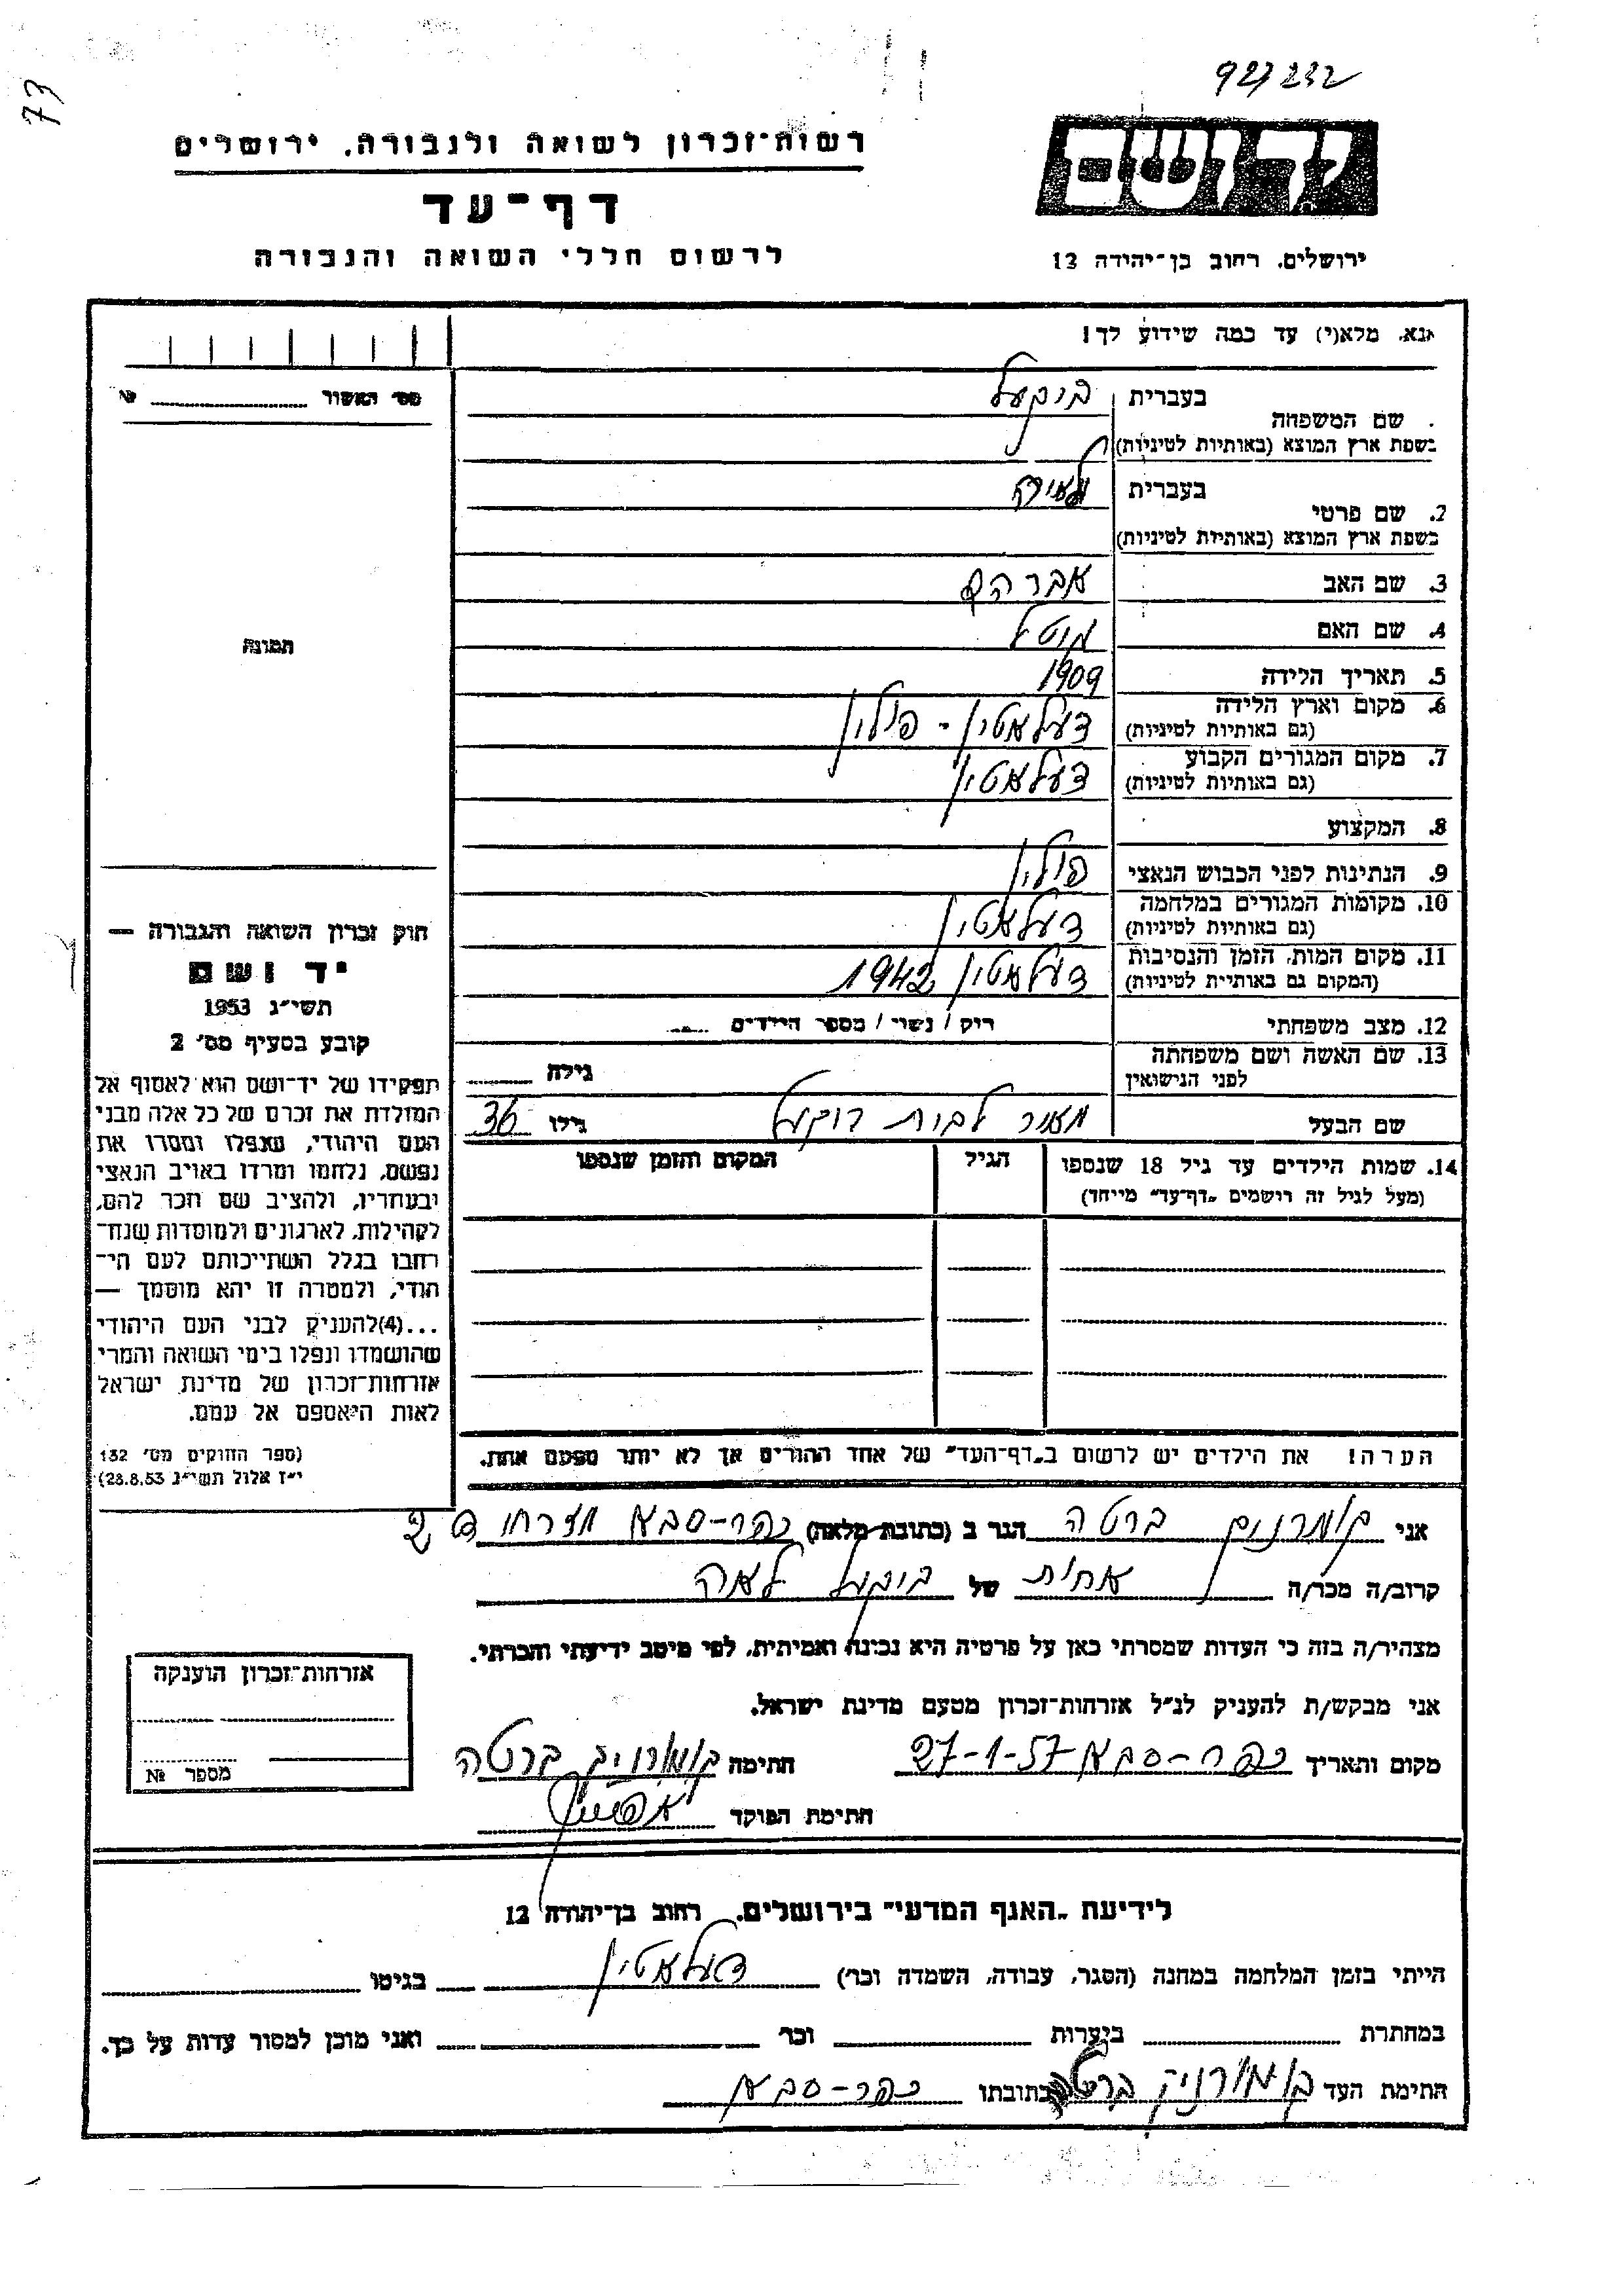 927232
73
יד ושם
רשות־זכרון לשואה ולגבורה, ירושלים
דף־עד
לרשום חללי השואה והגבורה
ירושלים, רחוב בן־יהודה 13
נא, מלא(י) עד כמה שידוע לך!
מס' האשור № 
שם המשפחה
בעברית
בשפת ארץ המוצא (באותיות לטיניות)
2. שם פרטי
בעברית
בשפת ארץ המוצא (באותיות לטיניות)
3. שם האב אברהם
4. שם האם
5. תאריך הלידה 1909
6. מקום וארץ הלידה דעלאטין - פולין
(גם באותיות לטיניות)
7. מקום המגורים הקבוע דעלאטין
(גם באותיות לטיניות)
8. המקצוע
9. הנתינות לפני הכבוש הנאצי פולין
10. מקומות המגורים במלחמה דעלאטין
(גם באותיות לטיניות)
11. מקום המות, הזמן והנסיבות דעלאטין 1942
(המקום גם באותיית לטיניות)
12. מצב משפחתי רוק / נשוי / מספר הילדים
13. שם האשה ושם משפחתה
לפני הנישואין גילה
שם הבעל גילו 36
14. שמות הילדים עד גיל 18 שנספו הגיל המקום והזמן שנספו
(מעל לגיל זה רושמים „דף־עד" מייחד)
הערה! את הילדים יש לרשום ב„דף־העד" של אחד ההורים אך לא יותר מפעם אחת.
תמונה
חוק זכרון השואה והגבורה —
יד ושם
תשי"ג 1953
קובע בסעיף מס' 2
תפקידו של יד־ושם הוא לאסוף אל
המולדת את זכרם של כל אלה מבני
העם היהודי, שנפלו ומסרו את
נפשם, נלחמו ומרדו באויב הנאצי
ובעוזריו, ולהציב שם וזכר להם,
לקהילות, לארגונים ולמוסדות שנח־
רחבו בגלל השתייכותם לעם הי־
הודי, ולמטרה זו יהא מוסמך —
...(4)להעניק לבני העם היהודי
שהושמדו ונפלו בימי השואה והמרי
אזרחות־זכרון של מדינת ישראל
לאות היאספם אל עמם.
(ספר החוקים מס' 132
י"ז אלול תשי"ג 28.8.53)
אני ברטה הגר ב (כתובת מלאה) כפר-סבא
קרוב/ה מכר/ה אחות של לאה
מצהיר/ה בזה כי העדות שמסרתי כאן על פרטיה היא נכונה ואמיתית, לפי מיטב ידיעתי והכרתי.
אני מבקש/ת להעניק לנ"ל אזרחות־זכרון מטעם מדינת ישראל.
מקום ותאריך כפר-סבא 27-1-57 חתימה ברטה
חתימת הפוקד
אזרחות־זכרון הוענקה
מספר №
לידיעת „האגף המדעי" בירושלים, רחוב בן־יהודה 12
הייתי בזמן המלחמה במחנה (הסגר, עבודה, השמדה וכר) דעלאטין בגיטו
במחתרת ביערות וכר ואני מוכן למסור עדות על כך.
חתימת העד ברטה כתובתו כפר-סבא